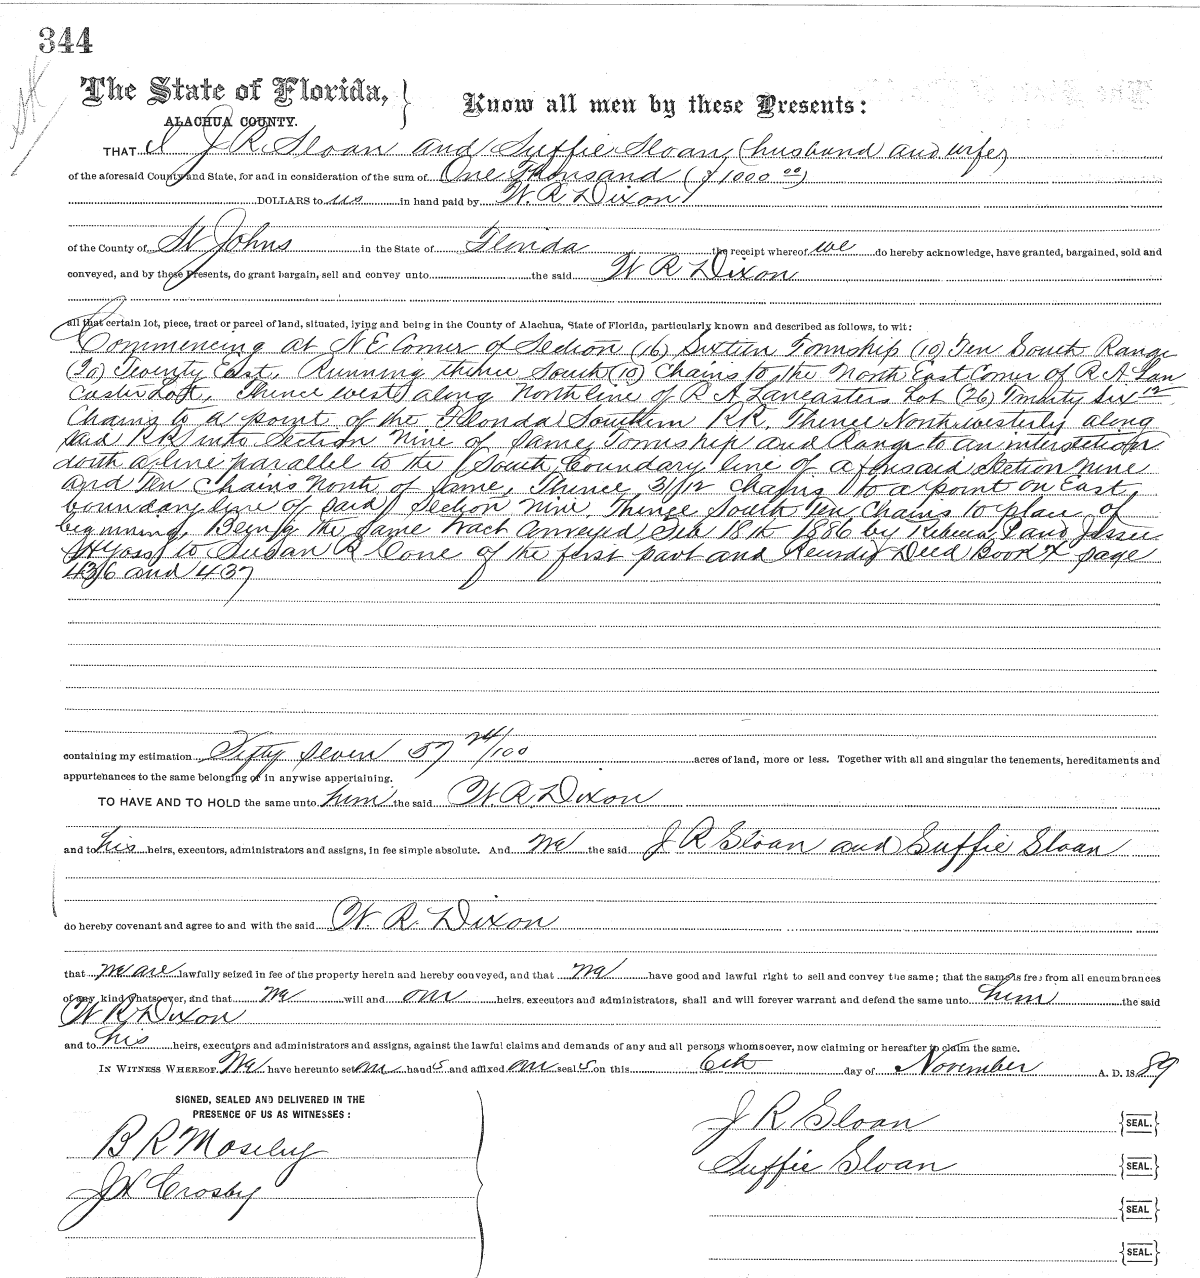 344
The State of Florida,
ALACHUA COUNTY.
Know all men by these Presents:
THAT I J. R. Sloan and Suffie Sloan, (husband and wife)
of the aforesaid County and State, for and in consideration of the sum of One Thousand ($1000 00)
DOLLARS to us in hand paid by W. R. Dixon
of the County of St Johns in the State of Florida the receipt whereof we do hereby acknowledge, have granted, bargained, sold and
conveyed, and by these Presents, do grant bargain, sell and convey unto the said W R Dixon
all that certain lot, piece, tract or parcel of land, situated, lying and being in the County of Alachua, State of Florida, particularly known and described as follows, to wit:
Commencing at N E Corner of Section (16) Sixteen Township (10) Ten South Range
(20) Twenty East, Running thence South (10) Chains to the North East Corner of R. A. Lan
casters Lot, Thence west along North line of R A Lancasters Lot (26) Twenty six 12
Chains to a point of the Florida Southern RR. Thence North westerly along
said RR into Section Nine of same Township and Range to an intersection
with a line parallel to the South boundary line of aforesaid Section Nine
and Ten Chains North of same, Thence 31/12 chains to a point on East
boundary line of said Section Nine, Thence South Ten Chains to place of
beginning, Being the same tract conveyed Feb 18th 1886 by Rebecca and Jesse
to Susan R Cone of the first part and Deed Book X page
436 and 437
containing my estimation Fifty Seven 57 24/100 acres of land, more or less. Together with all and singular the tenements, hereditaments and
appurtenances to the same belonging or in anywise appertaining.
TO HAVE AND TO HOLD the same unto him the said W. R. Dixon
and to his heirs, executors, administrators and assigns, in fee simple absolute. And we the said J R Sloan and Suffie Sloan
do hereby covenant and agree to and with the said W. R. Dixon
that we are lawfully seized in fee of the property herein and hereby conveyed, and that we have good and lawful right to sell and convey the same; that the same is free from all encumbrances
of any kind whatsoever, and that we will and our heirs, executors and administrators, shall and will forever warrant and defend the same unto him the said
W R Dixon
and to his heirs, executors and administrators and assigns, against the lawful claims and demands of any and all persons whomsoever, now claiming or hereafter to claim the same.
IN WITNESS WHEREOF. We have hereunto set our hand s and affixed our seal s on this 6th day of November A. D. 1889
SIGNED, SEALED AND DELIVERED IN THE
PRESENCE OF US AS WITNESSES:
B R Moseley
J H Crosby
J R Sloan SEAL.
Suffie Sloan SEAL.
SEAL
SEAL.